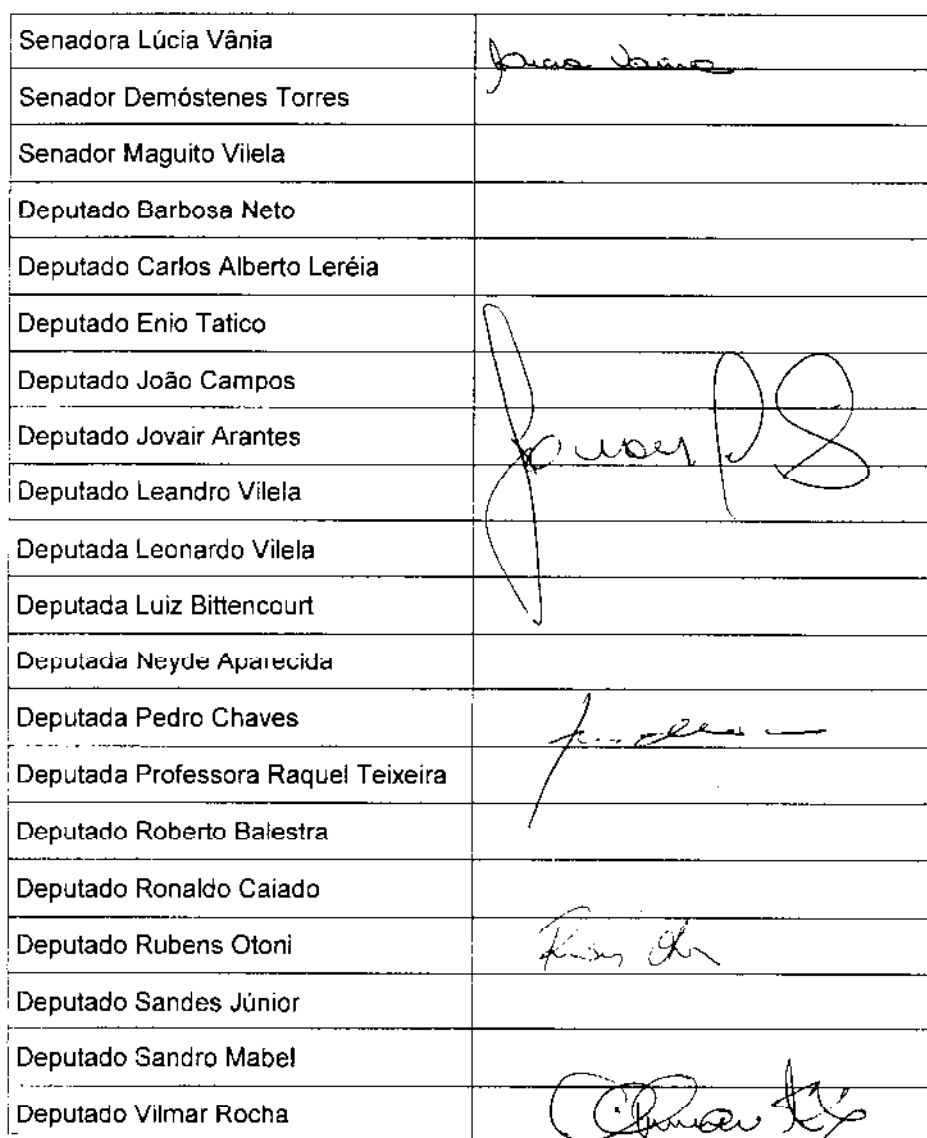 Senadora Lúcia Vânia
Lucia Vânia
Senador Demóstenes Torres
Senador Maguito Vilela
Deputado Barbosa Neto
Deputado Carlos Alberto Leréia
Deputado Enio Tatico
Deputado João Campos
Deputado Jovair Arantes
Deputado Leandro Vilela
Deputada Leonardo Vilela
Deputada Luiz Bittencourt
Deputada Neyde Aparecida
Deputada Pedro Chaves
Deputada Professora Raquel Teixeira
Deputado Roberto Balestra
Deputado Ronaldo Caiado
Deputado Rubens Otoni
Deputado Sandes Júnior
Deputado Sandro Mabel
Deputado Vilmar Rocha